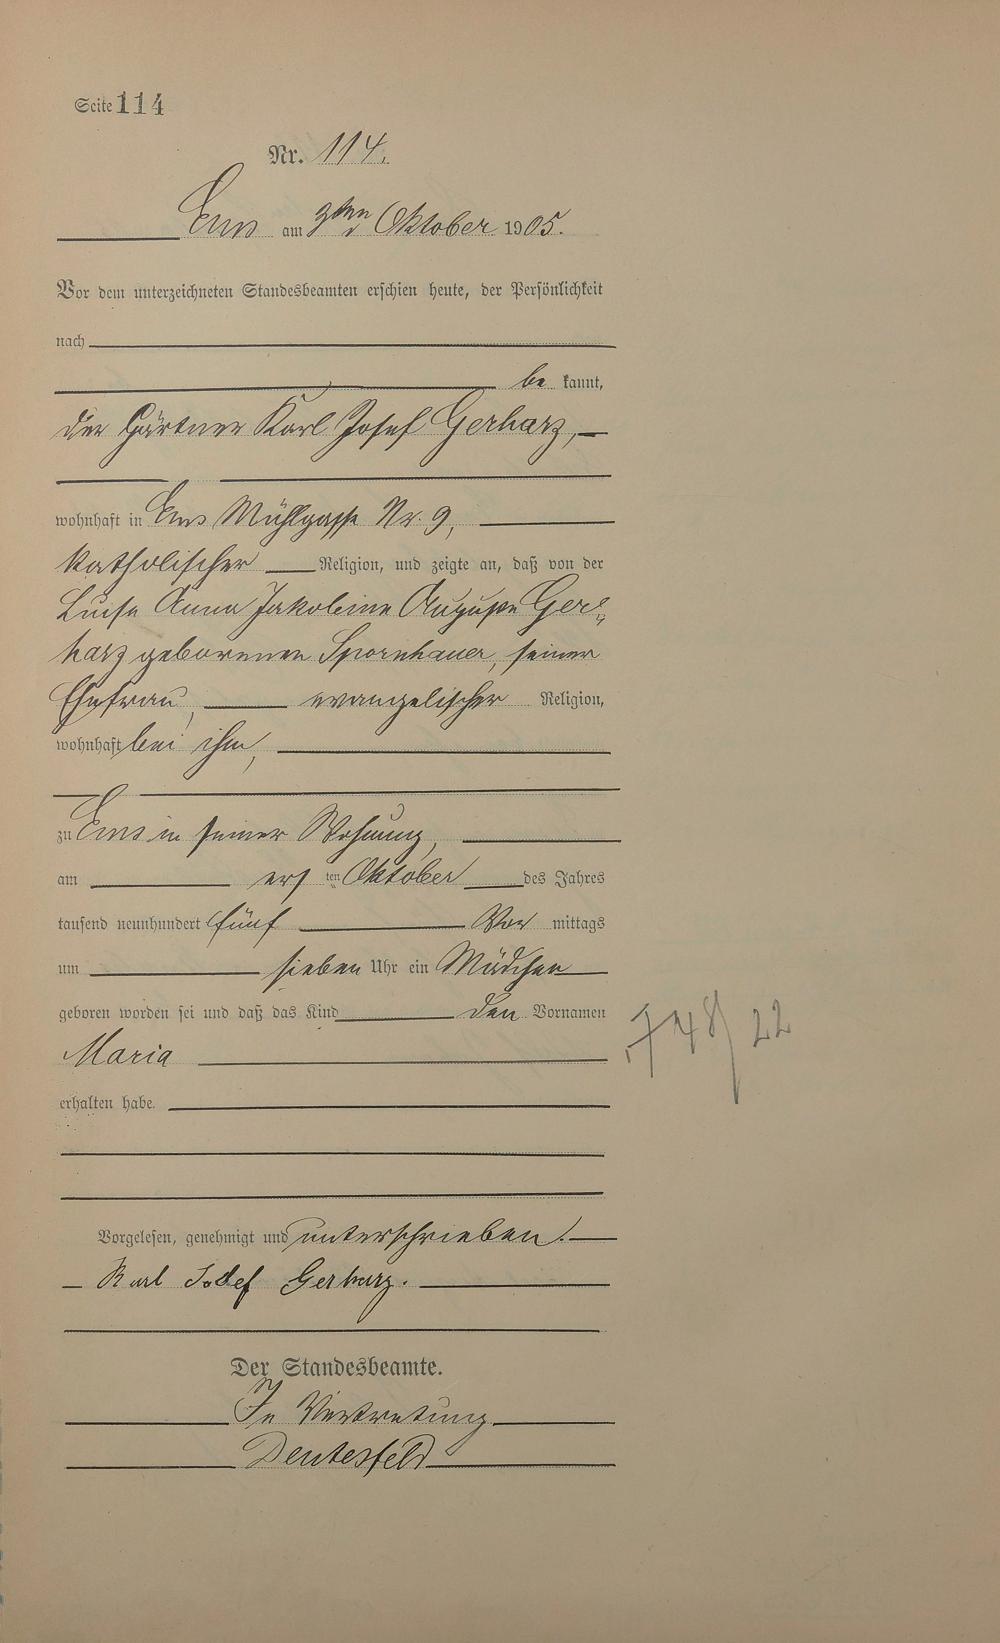 Seite 114
Nr. 114.
Ems am 3ten Oktober 1905.
Vor dem unterzeichneten Standesbeamten erschien heute, der Persönlichkeit
nach
be kannt,
der Gärtner Karl Josef Gerharz,
wohnhaft in Ems Mühlgasse Nr. 9,
katholischer Religion, und zeigte an, daß von der
Luise Anna Jakobine Auguste Ger-
harz geborenen Spornhauer, seiner
Ehefrau, evangelischer Religion,
wohnhaft bei ihm,
zu Ems in seiner Wohnung,
am ers ten Oktober des Jahres
tausend neunhundert fünf Vor mittags
um sieben Uhr ein Mädchen
geboren worden sei und daß das Kind den Vornamen
Maria
erhalten habe.
Vorgelesen, genehmigt und unterschrieben.
Karl Josef Gerharz.
Der Standesbeamte.
In Vertretung
Deutesfeld